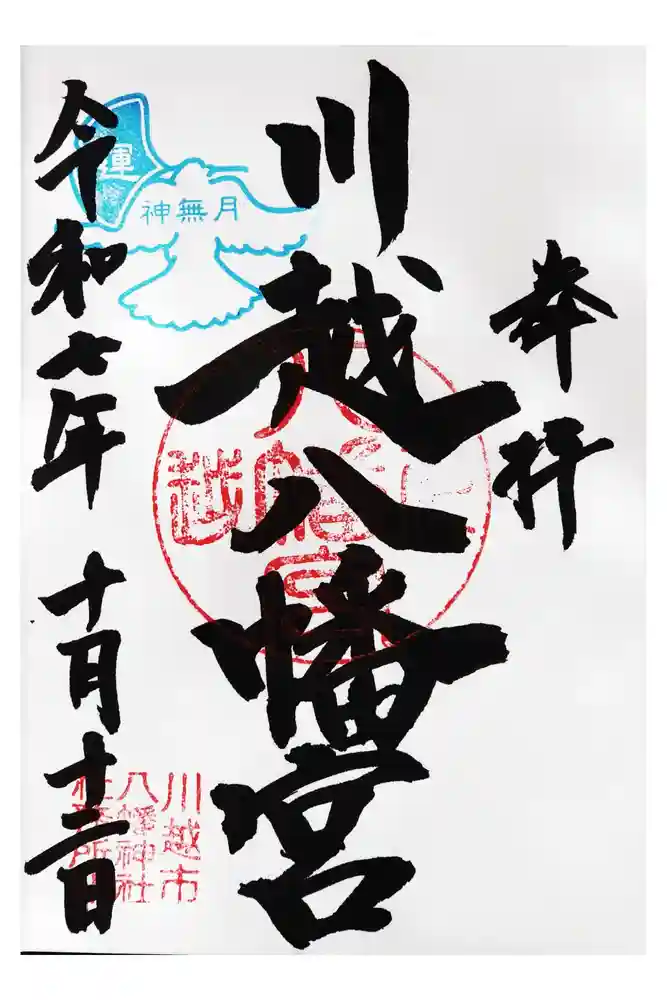 奉拝
川越八幡宮
令和七年 十月十二日
神無月
運
川越市
八幡神社
社務所